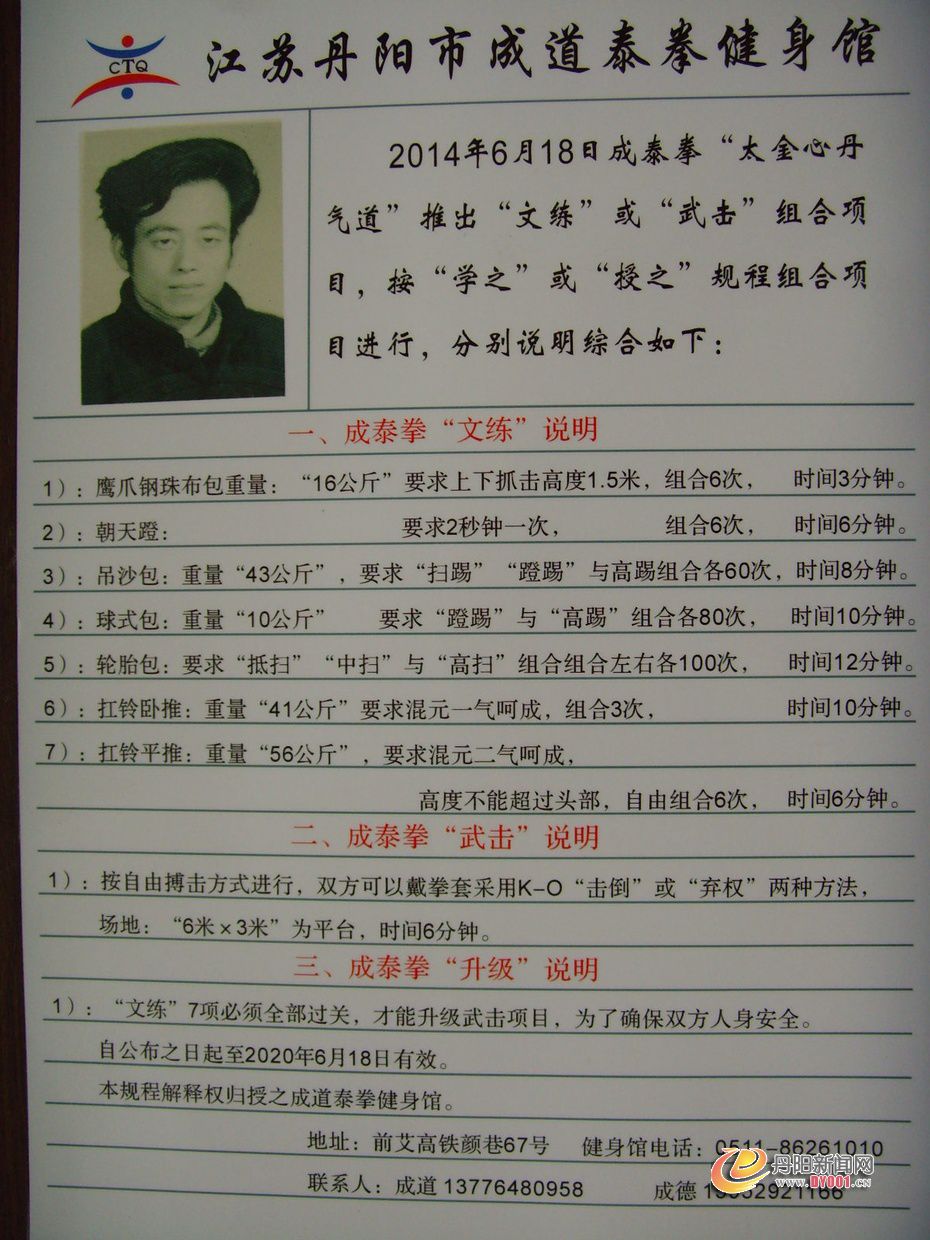 CTQ
江苏丹阳市成道泰拳健身馆
2014年6月18日成泰拳“太金心丹
气道”推出“文练”或“武击”组合项
目，按“学之”或“授之”规程组合项
目进行，分别说明综合如下：
一、成泰拳“文练”说明
1）：鹰爪钢珠布包重量：“16公斤”要求上下抓击高度1.5米，组合6次， 时间3分钟。
2）：朝天蹬： 要求2秒钟一次， 组合6次， 时间6分钟。
3）：吊沙包：重量“43公斤”，要求“扫踢”“蹬踢”与高踢组合各60次，时间8分钟。
4）：球式包：重量“10公斤” 要求“蹬踢”与“高踢”组合各80次， 时间10分钟。
5）：轮胎包：要求“抵扫”“中扫”与“高扫”组合组合左右各100次， 时间12分钟。
6）：扛铃卧推：重量“41公斤”要求混元一气呵成，组合3次， 时间10分钟。
7）：扛铃平推：重量“56公斤”，要求混元二气呵成，
高度不能超过头部，自由组合6次， 时间6分钟。
二、成泰拳“武击”说明
1）：按自由搏击方式进行，双方可以戴拳套采用K-O“击倒”或“弃权”两种方法，
场地：“6米×3米”为平台，时间6分钟。
三、成泰拳“升级”说明
1）：“文练”7项必须全部过关，才能升级武击项目，为了确保双方人身安全。
自公布之日起至2020年6月18日有效。
本规程解释权归授之成道泰拳健身馆。
地址：前艾高铁颜巷67号 健身馆电话：0511-86261010
联系人：成道 13776480958 成德
丹阳新闻网
www.DY001.cn